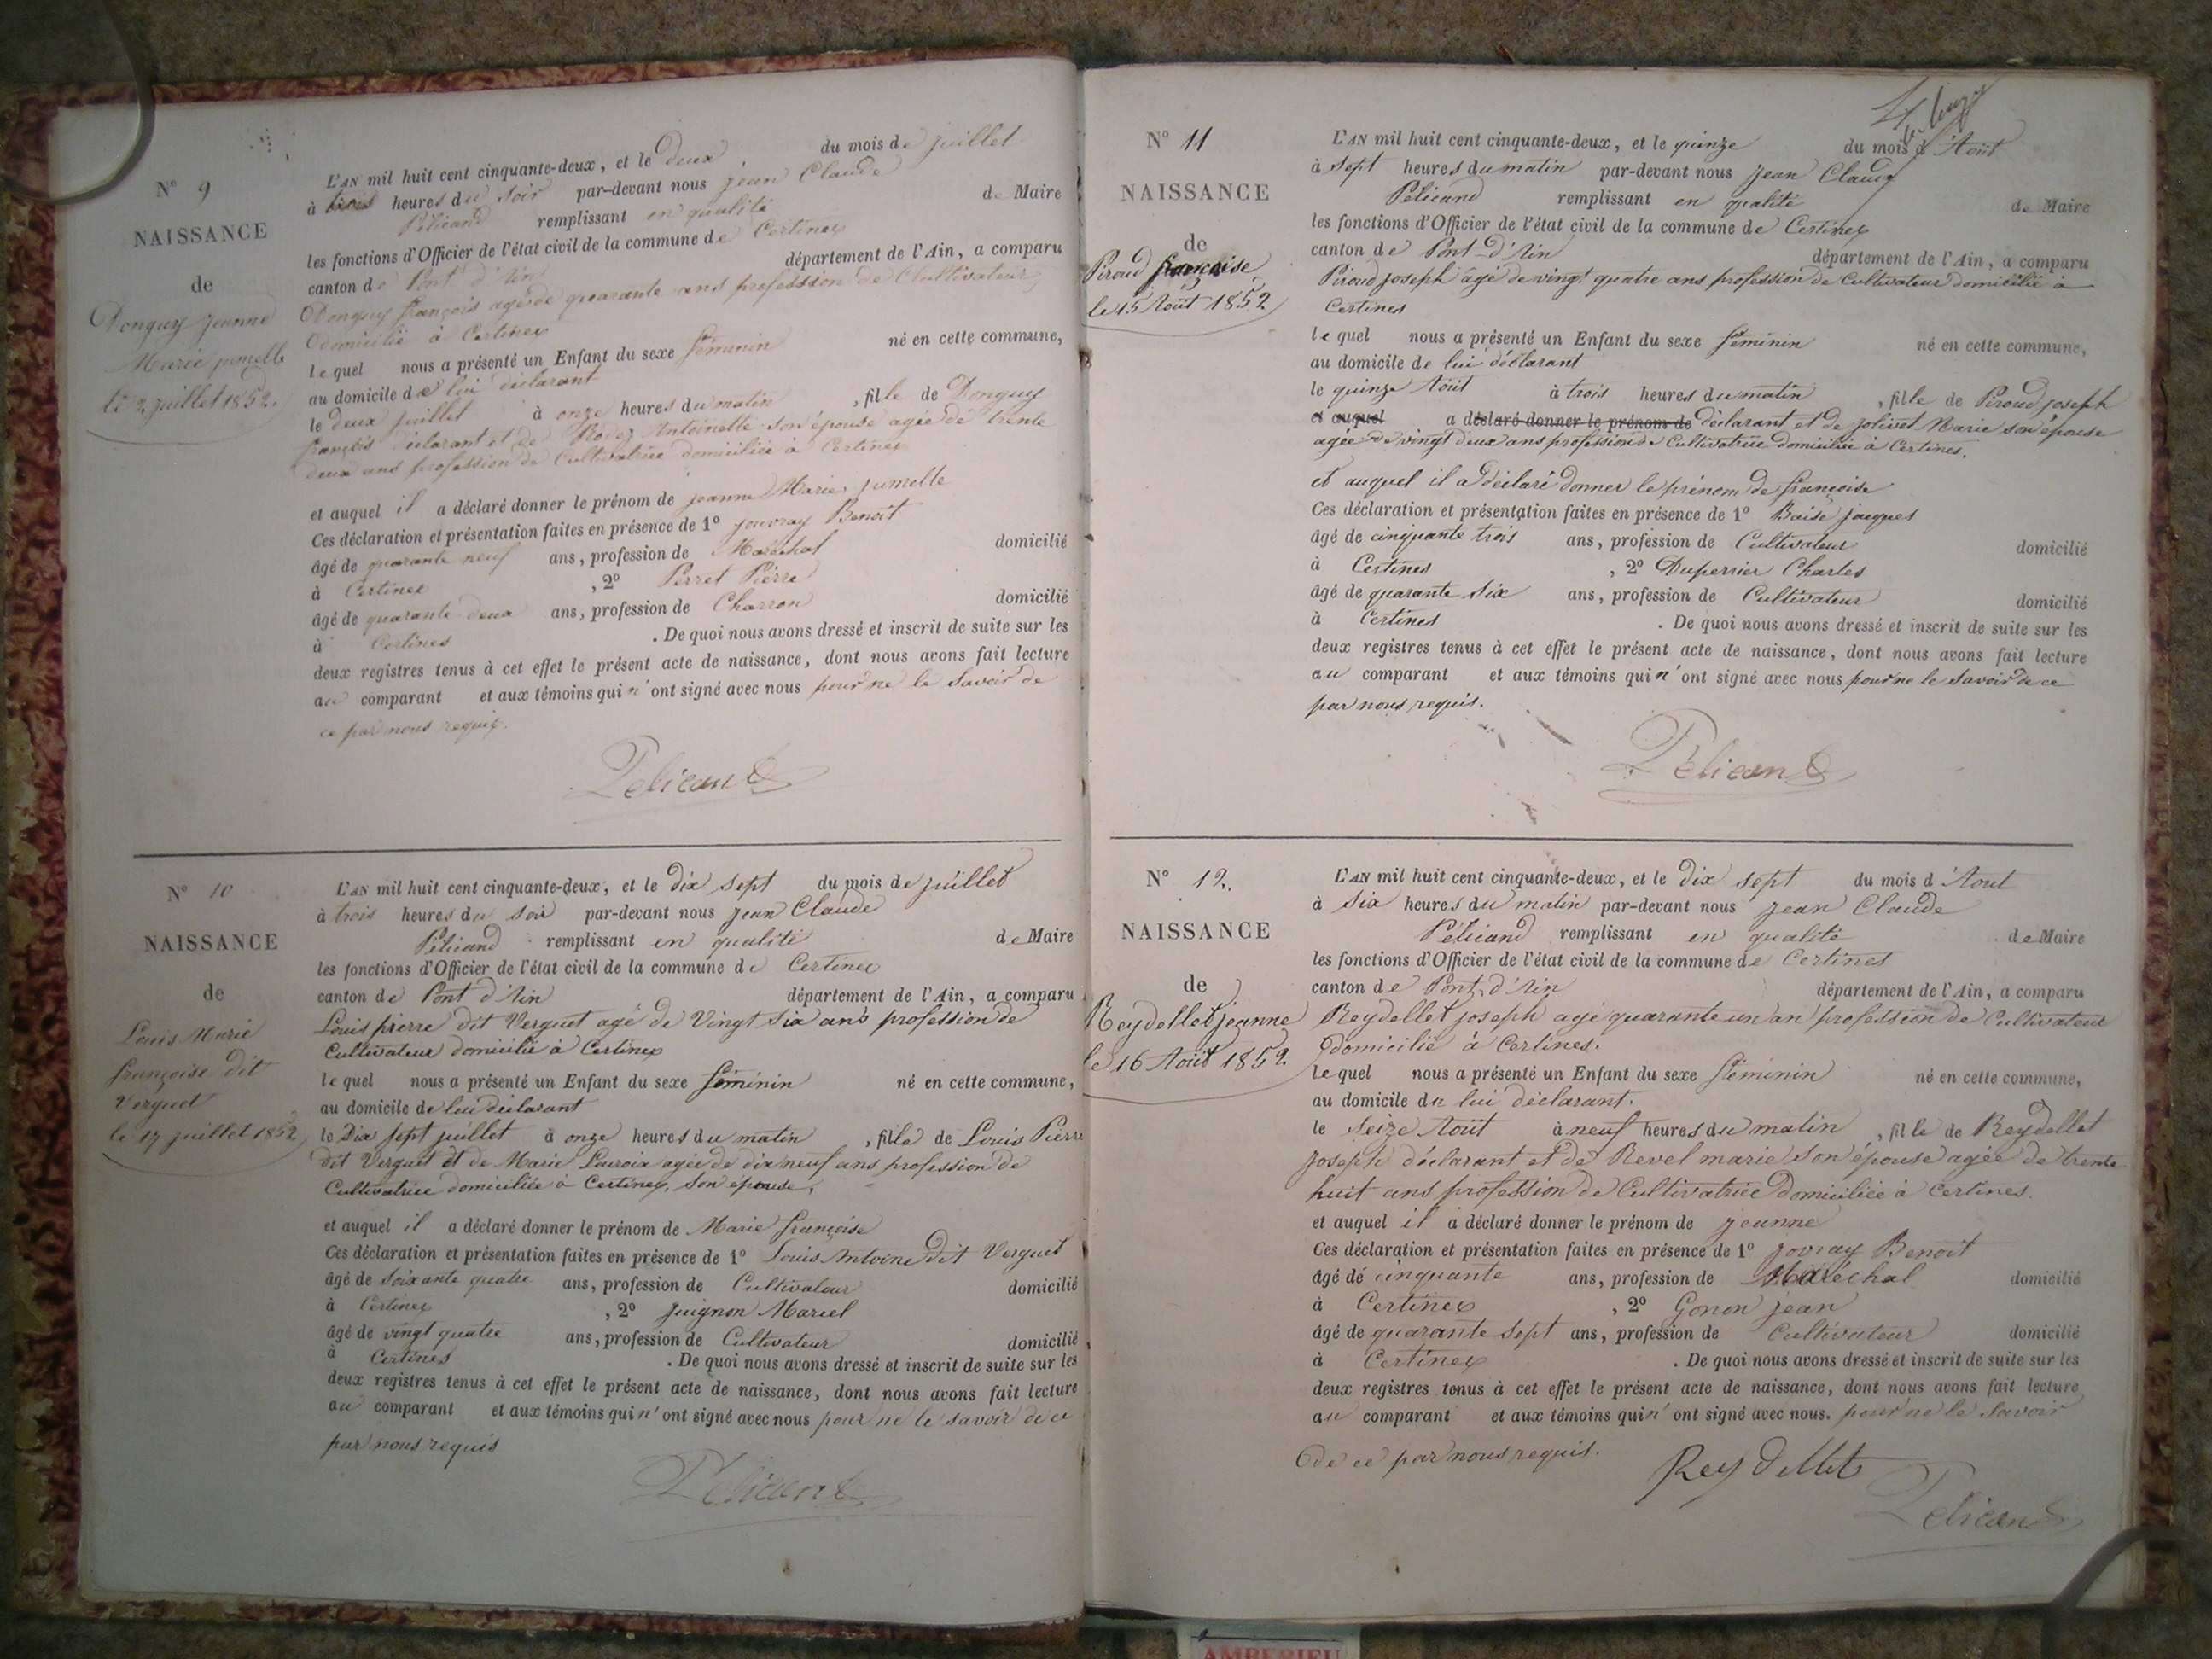 N° 9
NAISSANCE
de
Donguy Jeanne
Marie jumelle
le 2 juillet 1852.
L'AN mil huit cent cinquante-deux, et le deux du mois de juillet
à trois heures du soir par-devant nous jean Claude
Pélicand remplissant en qualité de Maire
les fonctions d'Officier de l'état civil de la commune de Certines
canton de Pont d'Ain département de l'Ain, a comparu
Donguy françois agé de quarante ans profession de Cultivateur
Domicilié à Certines
le quel nous a présenté un Enfant du sexe féminin né en cette commune,
au domicile de lui déclarant
le deux juillet à onze heures du matin, fille de Donguy
françois déclarant et de Antoinette son épouse agée de trente
deux ans profession de Cultivatrice domiciliée à Certines
et auquel il a déclaré donner le prénom de jeanne Marie jumelle
Ces déclaration et présentation faites en présence de 1° jouvray Benoit
âgé de quarante neuf ans, profession de Maréchal domicilié
à Certines, 2° Perret Pierre
âgé de quarante deux ans, profession de Charron domicilié
à Certines. De quoi nous avons dressé et inscrit de suite sur les
deux registres tenus à cet effet le présent acte de naissance, dont nous avons fait lecture
au comparant et aux témoins qui n'ont signé avec nous pour ne le savoir de
ce par nous requis.
Pelicand
N° 10
NAISSANCE
de
Louis Marie
françoise dit
Verguet
le 17 juillet 1852
L'AN mil huit cent cinquante-deux, et le dix sept du mois de juillet
à trois heures du soir par-devant nous jean Claude
Pélicand remplissant en qualité de Maire
les fonctions d'Officier de l'état civil de la commune de Certines
canton de Pont d'Ain département de l'Ain, a comparu
Louis pierre dit Verguet agé de Vingt six ans profession de
Cultivateur domicilié à Certines
le quel nous a présenté un Enfant du sexe féminin né en cette commune,
au domicile de lui déclarant
le Dix sept juillet à onze heures du matin, fille de Louis Pierre
dit Verguet et de Marie Lacroix agée de dix neuf ans profession de
Cultivatrice domiciliée à Certines, son épouse,
et auquel il a déclaré donner le prénom de Marie françoise
Ces déclaration et présentation faites en présence de 1° Louis Antoine dit Verguet
âgé de soixante quatre ans, profession de Cultivateur domicilié
à Certines, 2° juignon Marcel
âgé de vingt quatre ans, profession de Cultivateur domicilié
à Certines. De quoi nous avons dressé et inscrit de suite sur les
deux registres tenus à cet effet le présent acte de naissance, dont nous avons fait lecture
au comparant et aux témoins qui n'ont signé avec nous pour ne le savoir de ce
par nous requis
Pelicand
N° 11
NAISSANCE
de
Piroud françoise
le 15 Août 1852
L'AN mil huit cent cinquante-deux, et le quinze du mois d'Août
à sept heures du matin par-devant nous jean Claude
Pélicand remplissant en qualité de Maire
les fonctions d'Officier de l'état civil de la commune de Certines
canton de Pont d'Ain département de l'Ain, a comparu
Piroud joseph agé de vingt quatre ans profession de Cultivateur domicilié à
Certines
le quel nous a présenté un Enfant du sexe féminin né en cette commune,
au domicile de lui déclarant
le quinze Août à trois heures du matin, fille de Piroud joseph
et auquel a déclaré donner le prénom de déclarant et de jolivet Marie son épouse
agée de vingt deux ans profession de Cultivatrice domiciliée à Certines.
et auquel il a déclaré donner le prénom de françoise
Ces déclaration et présentation faites en présence de 1° Baise jacques
âgé de cinquante trois ans, profession de Cultivateur domicilié
à Certines, 2° Duperrier Charles
âgé de quarante six ans, profession de Cultivateur domicilié
à Certines. De quoi nous avons dressé et inscrit de suite sur les
deux registres tenus à cet effet le présent acte de naissance, dont nous avons fait lecture
au comparant et aux témoins qui n'ont signé avec nous pour ne le savoir de ce
par nous requis.
Pelicand
N° 12.
NAISSANCE
de
Reydellet jeanne
le 16 Août 1852.
L'AN mil huit cent cinquante-deux, et le dix sept du mois d'Aout
à six heures du matin par-devant nous jean Claude
Pélicand remplissant en qualité de Maire
les fonctions d'Officier de l'état civil de la commune de Certines
canton de Pont d'Ain département de l'Ain, a comparu
Reydellet joseph agé quarante un an profession de Cultivateur
domicilié à Certines.
le quel nous a présenté un Enfant du sexe féminin né en cette commune,
au domicile du lui déclarant.
le seize Août à neuf heures du matin, fille de Reydellet
joseph déclarant et de Revel marie son épouse agée de trente
huit ans profession de Cultivatrice domiciliée à Certines.
et auquel il a déclaré donner le prénom de jeanne
Ces déclaration et présentation faites en présence de 1° jouvray Benoit
âgé de cinquante ans, profession de Maréchal domicilié
à Certines, 2° Gonon jean
âgé de quarante sept ans, profession de Cultivateur domicilié
à Certines. De quoi nous avons dressé et inscrit de suite sur les
deux registres tenus à cet effet le présent acte de naissance, dont nous avons fait lecture
au comparant et aux témoins qui n'ont signé avec nous. pour ne le savoir
de ce par nous requis.
Reydellet
Pelicand
AMBERIEU